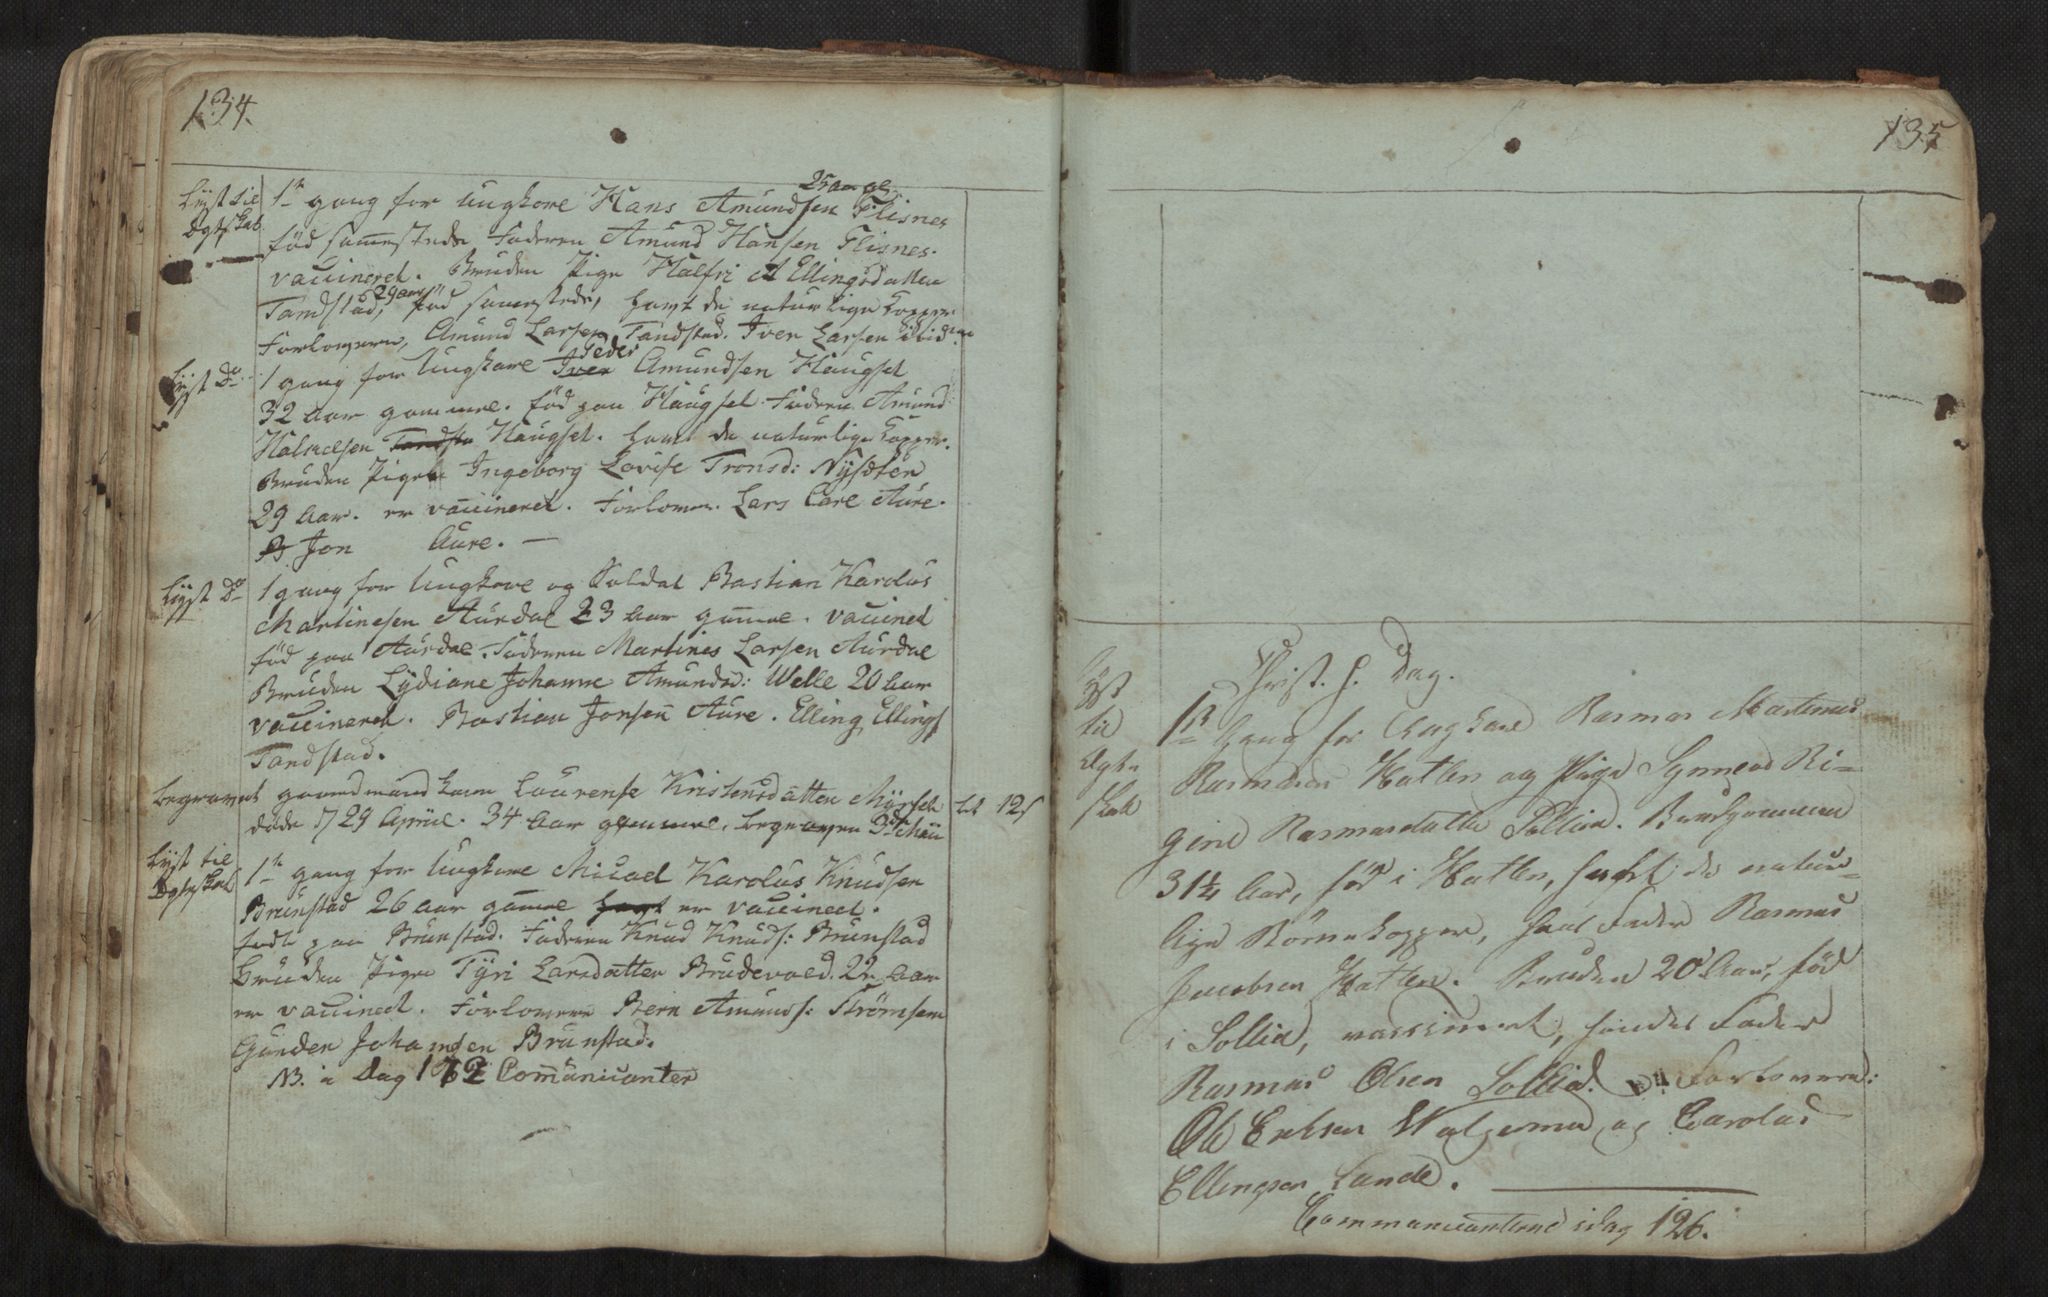 134.
Lyst til
Ægtskab
1ste gang for Ungkare Hans Amundsen 25 aar gl Flisnes
fød sammestede Faderen Amund Hansen Flisnes.
vaccineret. Bruden Pige Halfri A Ellingsdatter
Tandstad, 29 aar fød samestede, havt de naturlige Kopper
Forlovere, Amund Larsen Tandstad. Iver Larsen ibidem
Lyst Do
1 gang for Ungkare Iver Peder Amundsen Haugset
32 aar gammel. fød paa Haugset. Faderen Amund
Halvorsen Tandsta Haugset. havt de naturlige Kopper.
Bruden Pige Ingeborg Lovise Tronsd: Nysæter
29 Aar. er vaccineret. Forlover. Lars Care Aure.
Jon Aure. —
Lyst Do
1 gang for Ungkare og Soldat Bastian Karolus
Martinesen Aurdal 23 Aar gamel. vaccinet
fød paa Aurdal. Faderen Martines Larsen Aurdal
Bruden Lydiane Johanne Amundsd: Welle 20 Aar
vaccineret. Bastian Jonsen Aure. Elling Ellings
Tandstad.
Begravet gaardmand kone Laurense Kristensdatter Myrset bet 12 s
døde d 29 April. 34 Aar gammel, begraven 3de Maii
Lyst til
Ægteskab
1te gang for Ungkare Micael Karolus Knudsen
Brunstad 26 aar gamel havt er vaccinect.
født paa Brunstad. Faderen Knud Knuds: Brunstad
Bruden Pige Tyri Larsdatter Brudevold. 22 Aar
er vaccinect. Forlovere Bern Amunds: Strømsem
Gunder Johansen Brunstad.
NB. i Dag 172 Comunicanter
135
Christ. H. Dag.
Lyst
til
Ægte
skab
1ste Gang for Ungkarl Rasmus Martinus
Rasmusen Hatlen og Pige Synneve Ri-
gine Rasmusdatter Sollid. Brudgommen
31¼ Aar, fød i Hatlen, havt de natur-
lige Børnekopper, hans Fader Rasmus
Jacobsen Hatlen. Bruden 20 Aar, fød
i Sollid, vassineret, hendes Fader
Rasmus Olsen Sollid. Forlovere:
Ole Eriksen Walgermo og Carolus
Ellingsen Lande.
Communicanterne idag 126.